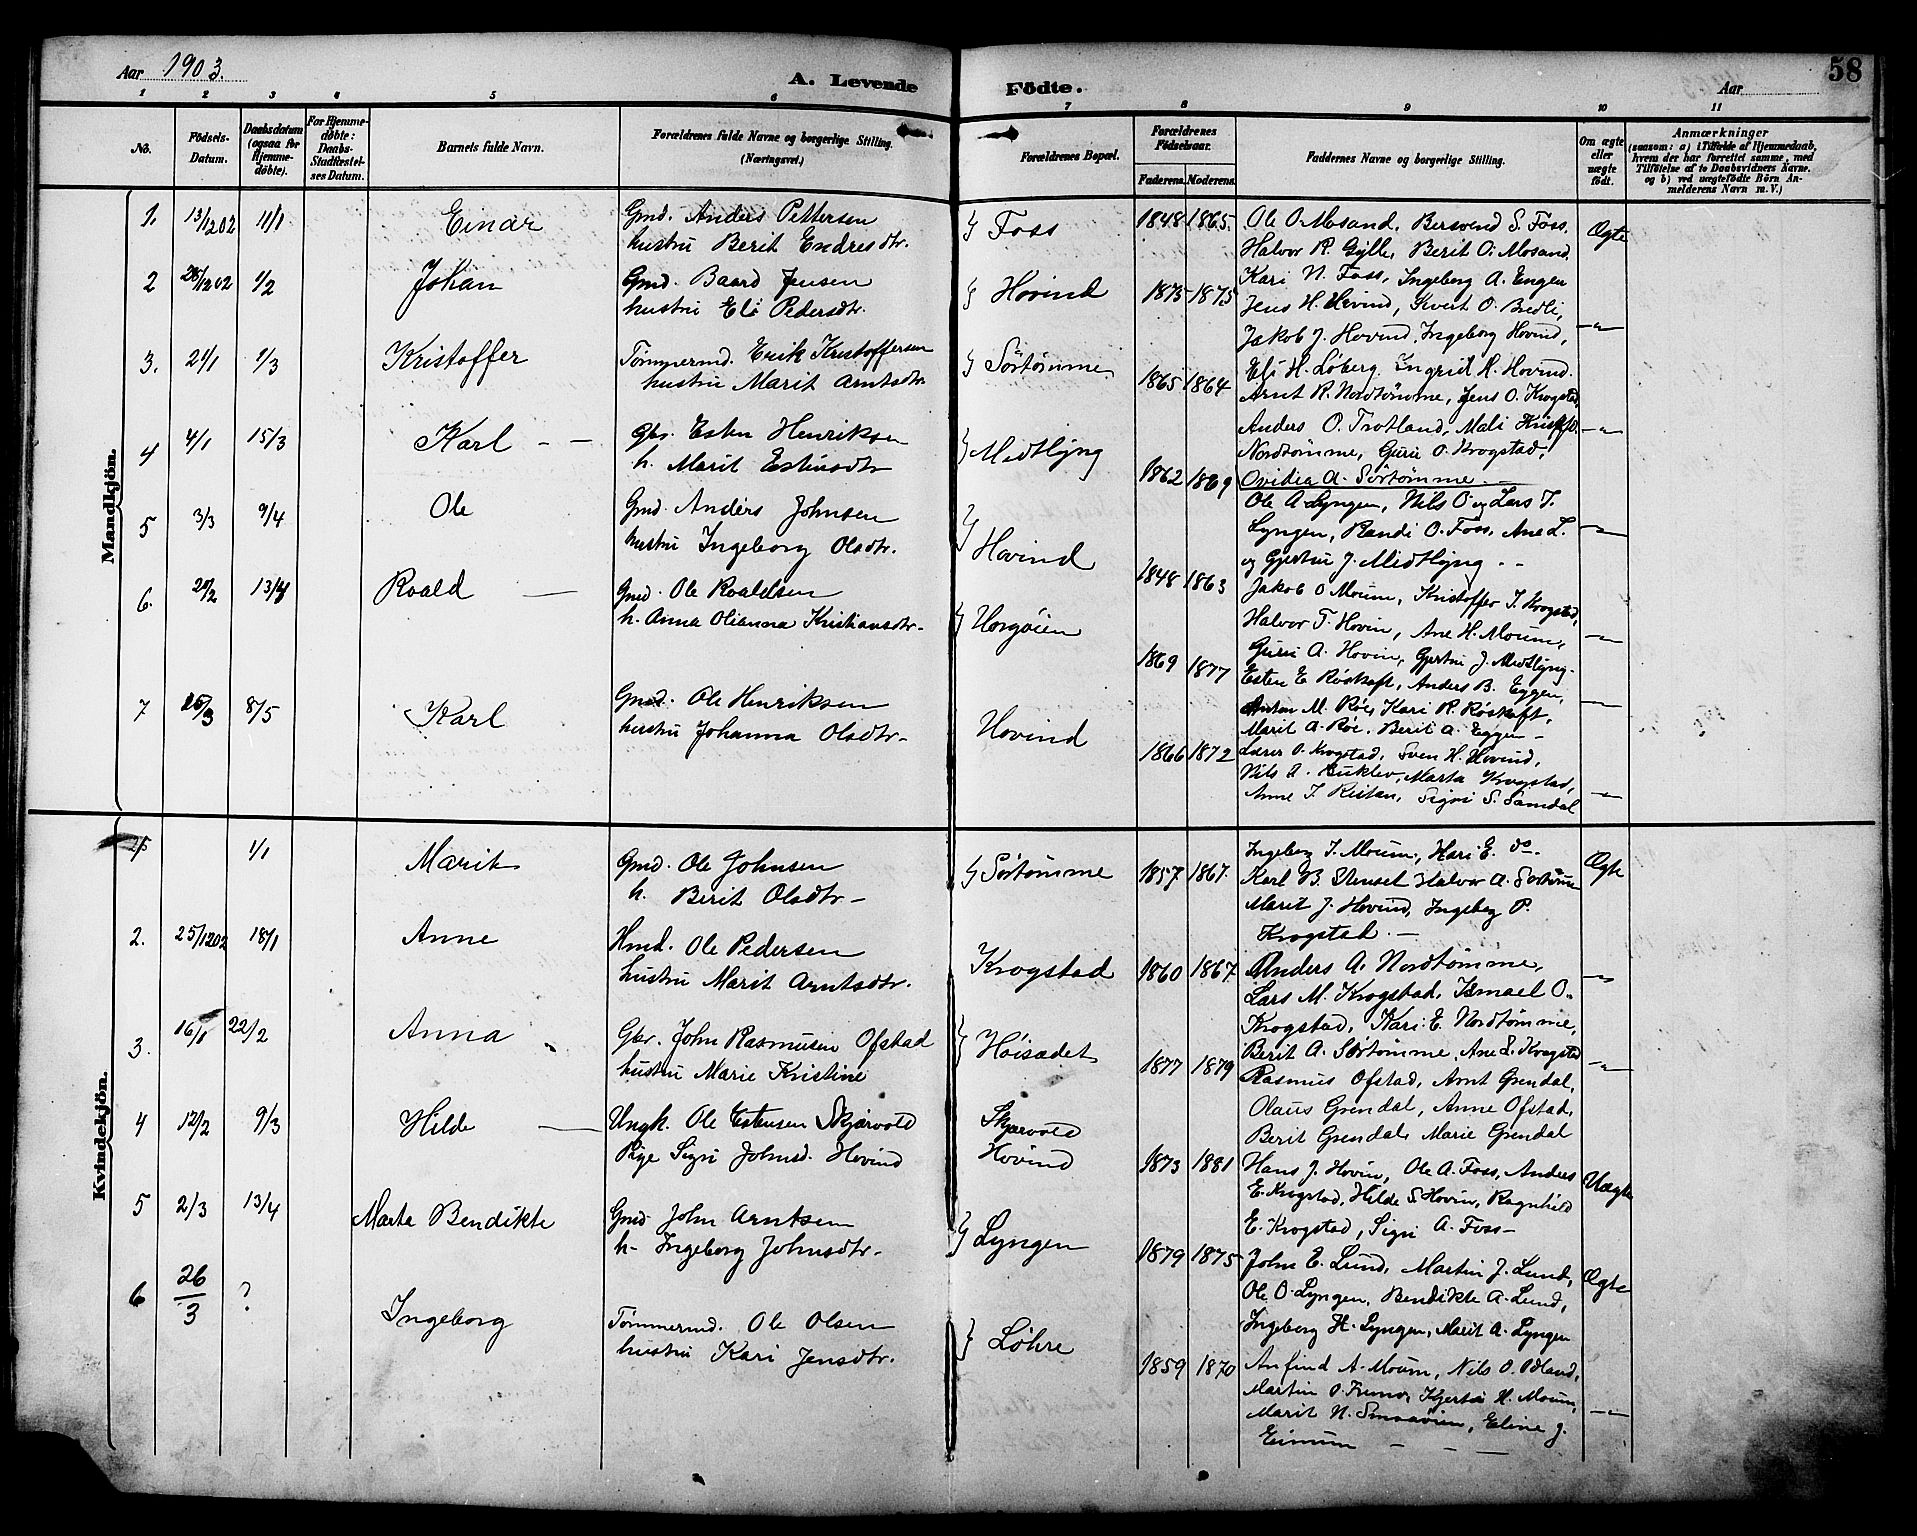 Aar 1903. A. Levende Födte. Aar 58
1 2 3 4 5 6 7 8 9 10 11
No. Födsels-Datum. Daabsdatum (ogsaa for Hjemme-döbte). For Hjemme-döbte: Daabs-Stadfæstel-ses Datum. Barnets fulde Navn. Forældrenes fulde Navne og borgerlige Stilling. (Næringsvei.) Forældrenes Bopæl. Forældrenes Födselsaar. Faderens. Moderens. Faddernes Navne og borgerlige Stilling. Om ægte eller uægte födt. Anmærkninger
(saasom: a) i Tilfælde af Hjemmedaab,
hvem der har forrettet samme, med
Tilföielse af to Daabsvidners Navne.
og b) ved uægtefödte Börn An-
melderens Navn m. V.)
Mandkjön.
1. 13/12 02 11/1 Einar Gmd. Anders Pettersen
hustru Berit Endresdtr. Foss 1848 1865. Ole O. Mosand, Bersvend S. Foss,
Halvor R. Gylle, Berit O. Mosand Ægte
Kari N. Foss, Ingeborg A. Engen
2 26/12 02 1/2 Johan Gmd. Baard Jensen
hustru Eli Pedersdtr. Hovind 1875 1875 Jens H. Hovind, Sivert O. Bredli,
Jakob J. Hovind, Ingeborg Hovind, -"-
Eli H. Løberg, Ingrid H. Hovind.
3. 21/1 1/3 Kristoffer Tømmermd. Erik Kristoffersen
hustru Marit Arntsdtr. Sörtømme 1865 1864 Arnt R. Nordtömme, Jens O. Krogstad,
Anders O. Trotland, Mali Kristfd. -"-
Nordtømme, Guri O. Krogstad,
Ovidia A. Sörtømme. -
4 4/1 15/3 Karl - - Gbr. Esten Henriksen
h. Marit Estensdtr Midtlyng 1862 1869 Ole A Lyngen, Nils O og Lars T.
Lyngen, Randi O. Foss, Ane L. -"-
og Gjertru J. Midtlyng - -
5 3/3 9/4 Ole Gmd. Anders Johnsen
hustru Ingeborg Olsdtr. Hovind 1848 1863 Jakob O Moum, Kristoffer J. Krogstad,
Halvor T. Hovin, Ane H. Moum, -"-
Guri A. Hovin, Gjertru J. Midtlyng.
6. 20/2 13/4 Roald - Gmd. Ole Roaldsen
h. Anna Olianna Kristiansdtr. Horgöien 1869 1877 Esten E Røskaft, Anders B. Eggen,
Anton M. Röe, Kari R. Røskaft, -"-
Marit A. Röe, Berit A. Eggen -
7 15/3 8/5 Karl Gmd. Ole Henriksen
hustru Johanna Olsdtr - Hovind 1866 1872 Lærer O. Krogstad, Sven H. Hovind,
Nils A. Buklev, Marta Krogstad,
Anne T. Ristan, Sigri S. Samdal -"-
Kvindekjön.
1/1 Marit Gmd. Ole Johnsen
h. Berit Olsdtr - Sørtömme 1857 1867. Ingeborg J. Moum, Kari E. do -
Karl B. Stensel Halvor A. Sørtömme Ægte
Marit J. Hovind, Ingeborg P.
Krogstad. -
2. 25/12 02 18/1 Anne Hmd. Ole Pedersen
hustru Marit Arntsdtr. Krogstad 1860 1867 Anders A. Nordtømme, -"-
Lars M. Krogstad, Ismael O.
Krogstad, Kari E. Nordtømme,
Berit A. Sørtømme, Ane L. Krogstad
3. 16/1 22/2 Anna Gbr. John Rasmusen Ofstad
hustru Marie Kristine Höisædet 1877 1879 Rasmus Ofstad, Arnt Grendal, -"-
Olaus Grendal, Anne Ofstad,
Berit Grendal, Marie Grendal
4 12/2 9/3 Hilde - Ungk. Ole Estensen Skjærvold
Pige Sigri Johnsd. Hovind Skjærvold
Hovind 1873 1881 Hans J. Hovin, Ole A. Foss, Anders
E. Krogstad, Hilde S. Hovin, Ragnhild Uægte
E. Krogstad, Sigri A. Foss -
5 2/3 13/4 Marta Bendikte Gmd. John Arntsen
h- Ingeborg Johnsdtr. Lyngen 1879 1875 John E. Lund, Martin J. Lund, Ægte
Ole O. Lyngen, Bendikte A. Lund,
Ingeborg H. Lyngen, Marit A. Lyngen
6 26/3 ? Ingeborg Tømmermd. Ole Olsen
hustru Kari Jensdtr. Løhre 1859 1870 Anfind A. Moum, Nils O. Ødland,
Martin O. Frumo, Kjersti H. Moum, -"-
Marit N. Smaaöien, Eline J.
Eimum - - -